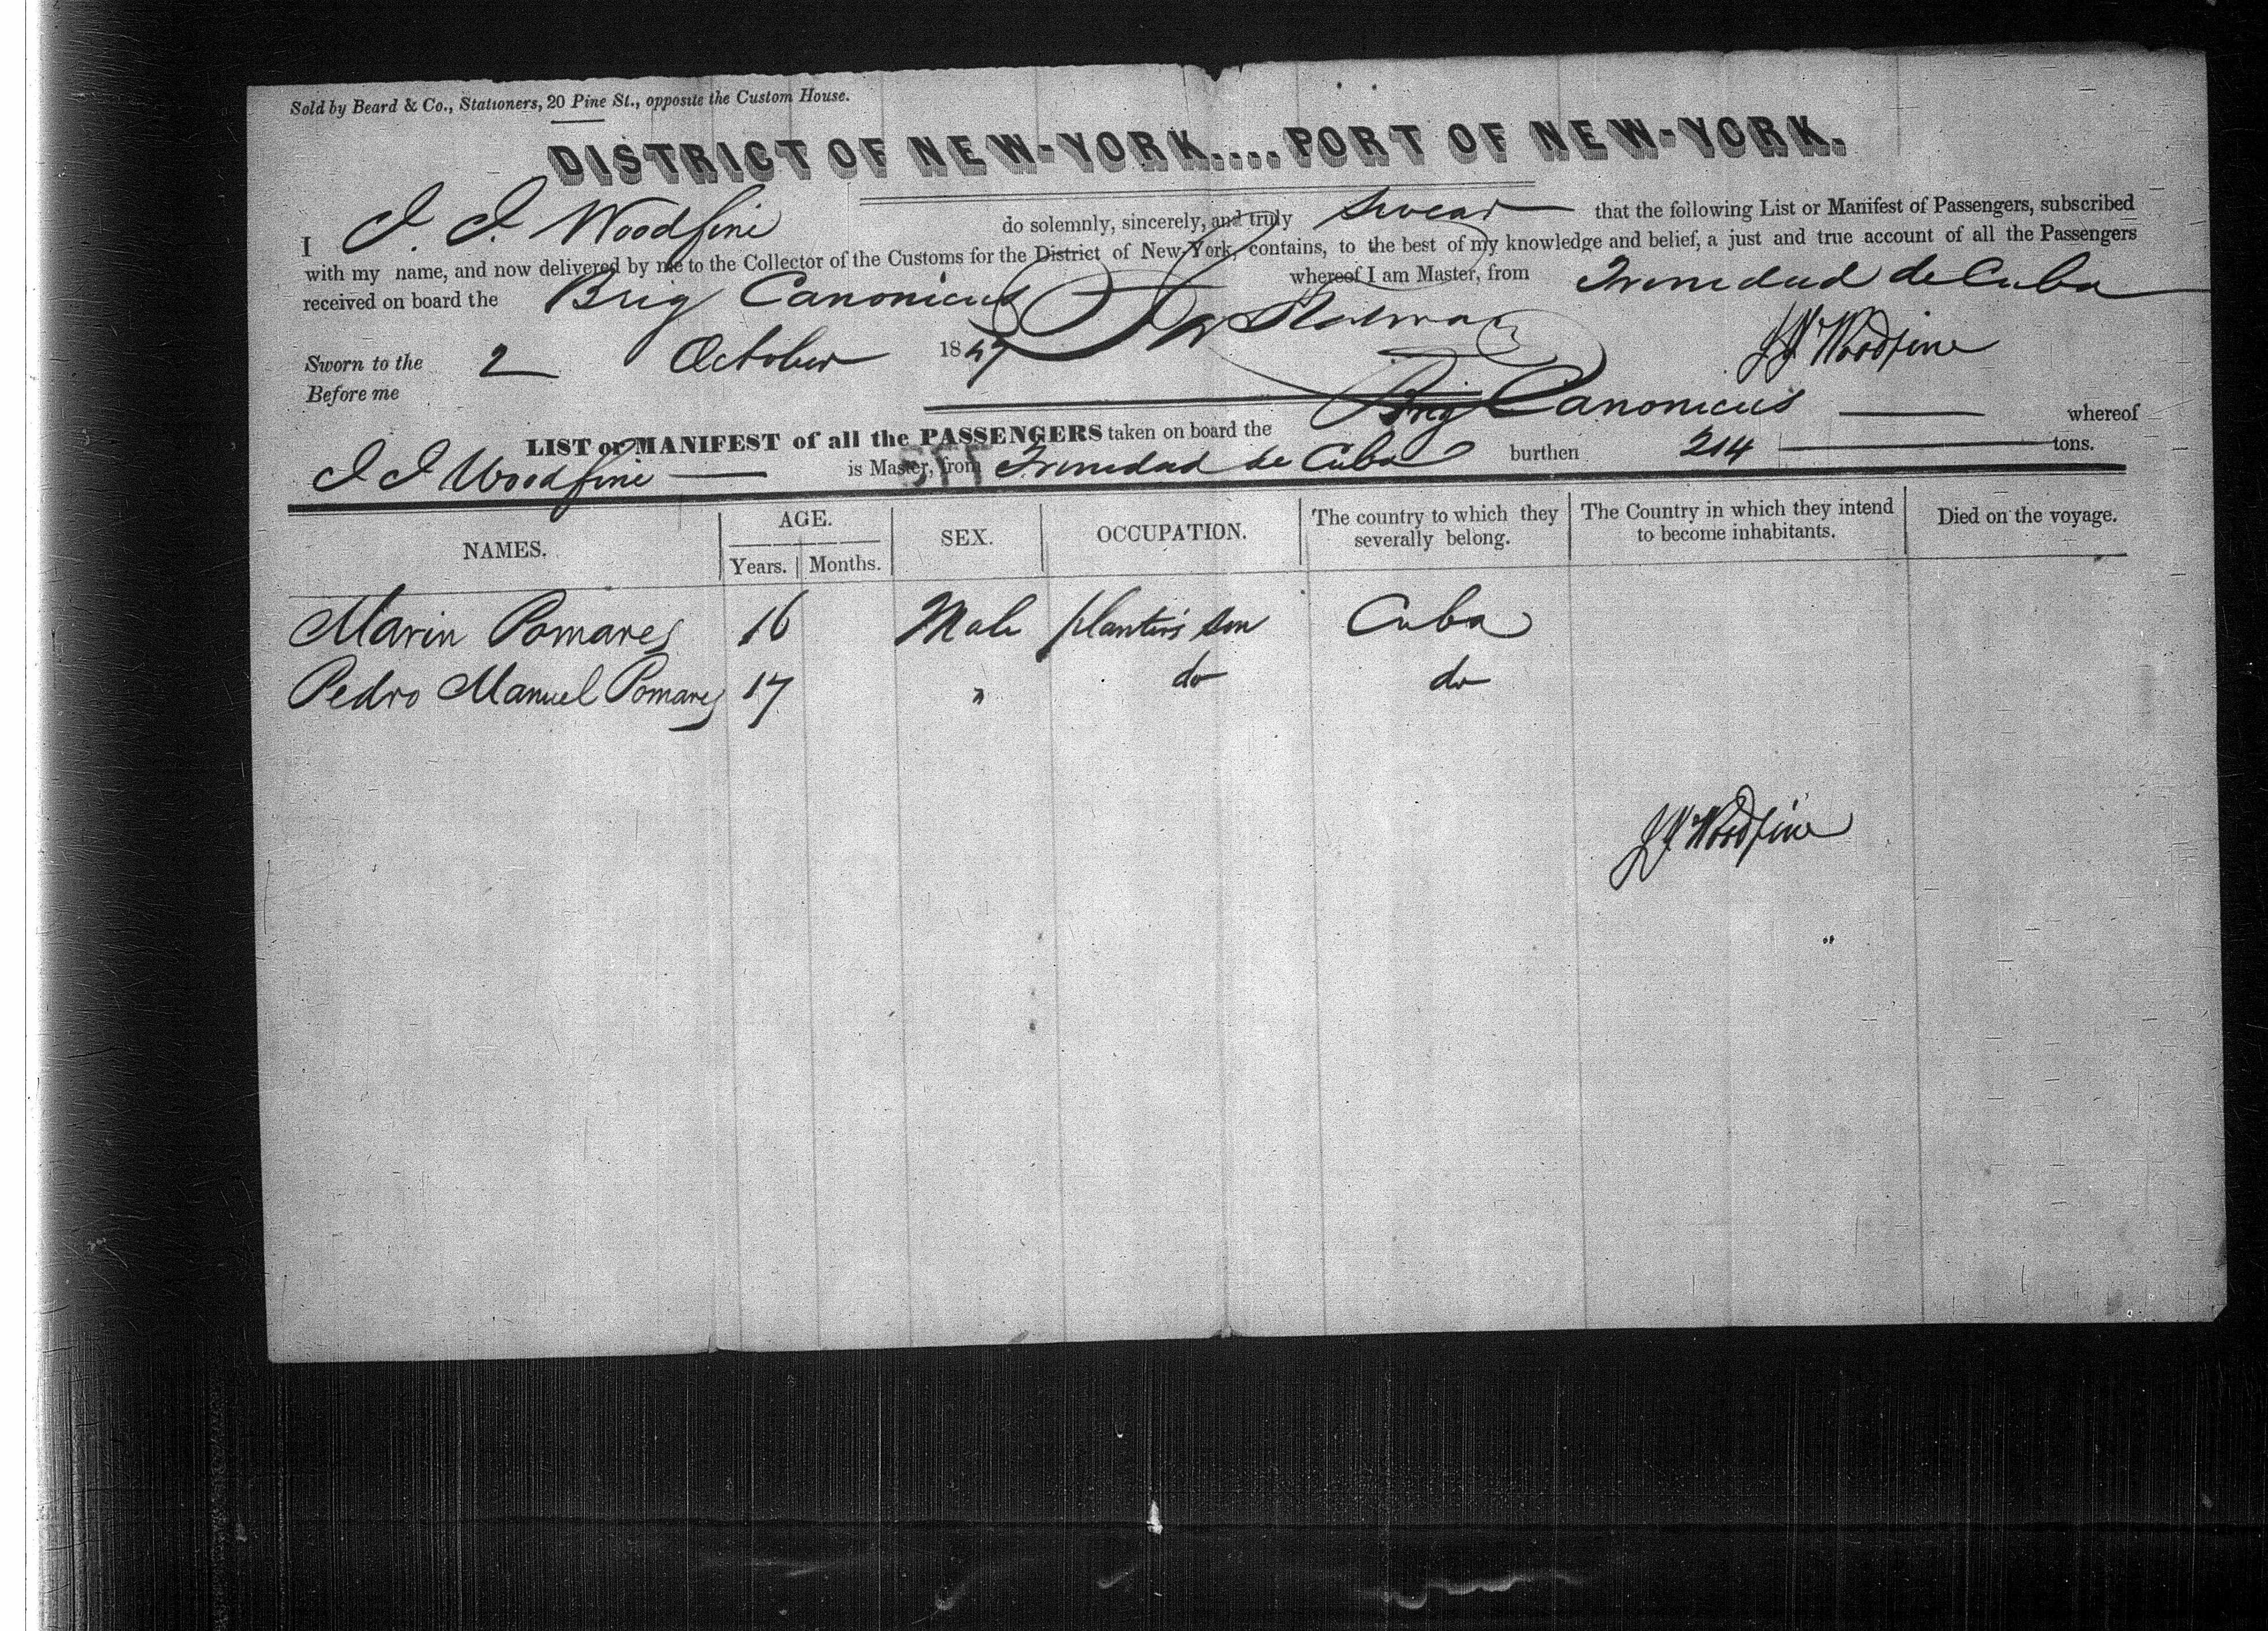 Sold by Beard & Co., Stationers, 20 Pine St., opposite the Custom House.
DISTRICT OF NEW-YORK....PORT OF NEW-YORK.
I J. J. Woodfine do solemnly, sincerely, and truly swear that the following List or Manifest of Passengers, subscribed
with my name, and now delivered by me to the Collector of the Customs for the District of New-York, contains, to the best of my knowledge and belief, a just and true account of all the Passengers
received on board the Brig Canonicus whereof I am Master, from Trinidad de Cuba
Sworn to the 2 October 1847 J J Woodfine
Before me
LIST or MANIFEST of all the PASSENGERS taken on board the Brig Canonicus whereof
J J Woodfine is Master, from Trinidad de Cuba burthen 214 tons.
NAMES. AGE. Years. Months. SEX. OCCUPATION. The country to which they severally belong. The Country in which they intend to become inhabitants. Died on the voyage.
Marin Pomares 16 Male planter's son Cuba
Pedro Manuel Pomares 17 " do do
J J Woodfine